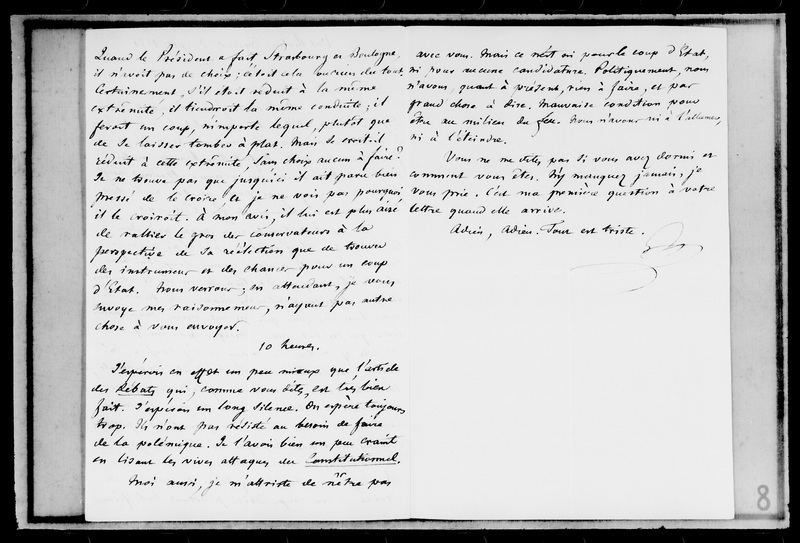 Quand le Président a fait Strasbourg et Boulogne,
il n'avoit pas de choix ; c'étoit cela ou rien du tout.
Certainement, s'il étoit réduit à la même
extrémité, il tiendroit la même conduite ; il
feroit un coup, n'importe lequel, plutôt que
de se laisser tomber à plat. Mais se croit-il
réduit à cette extrémité, sans choix aucun à faire ?
Je ne trouve pas que jusqu'ici il ait paru bien
pressé de le croire, et je ne vois pas pourquoi
il le croiroit. À mon avis, il lui est plus aisé
de rallier le gros des conservateurs à la
perspective de sa réélection que de trouver
des instrumens et des chances pour un coup
d'Etat. Nous verrons ; en attendant, je vous
envoye mes raisonnemens, n'ayant pas autre
chose à vous envoyer.
10 heures.
J'espérois en effet un peu mieux que l'article
des Débats qui, comme vous dites, est très bien
fait. J'espérois un long silence. On espère toujours
trop. Ils n'ont pas résisté au besoin de faire
de la polémique. Je l'avois bien un peu craint
en lisant les vives attaques du Constitutionnel.
Moi aussi, je m'attriste de n'être pas
avec vous. Mais ce n'est ni pour le coup d'Etat,
ni pour aucune candidature. Politiquement, nous
n'avons, quant à présent, rien à faire, et pas
grand chose à dire. Mauvaise condition pour
être au milieu du feu. Nous n'avons ni à l'allumer,
ni à l'éteindre.
Vous ne me dites pas si vous avez dormi et
comment vous êtes. N'y manquez jamais, je
vous prie. C'est ma première question à votre
lettre quand elle arrive.
Adieu, Adieu. Tout est triste.
8